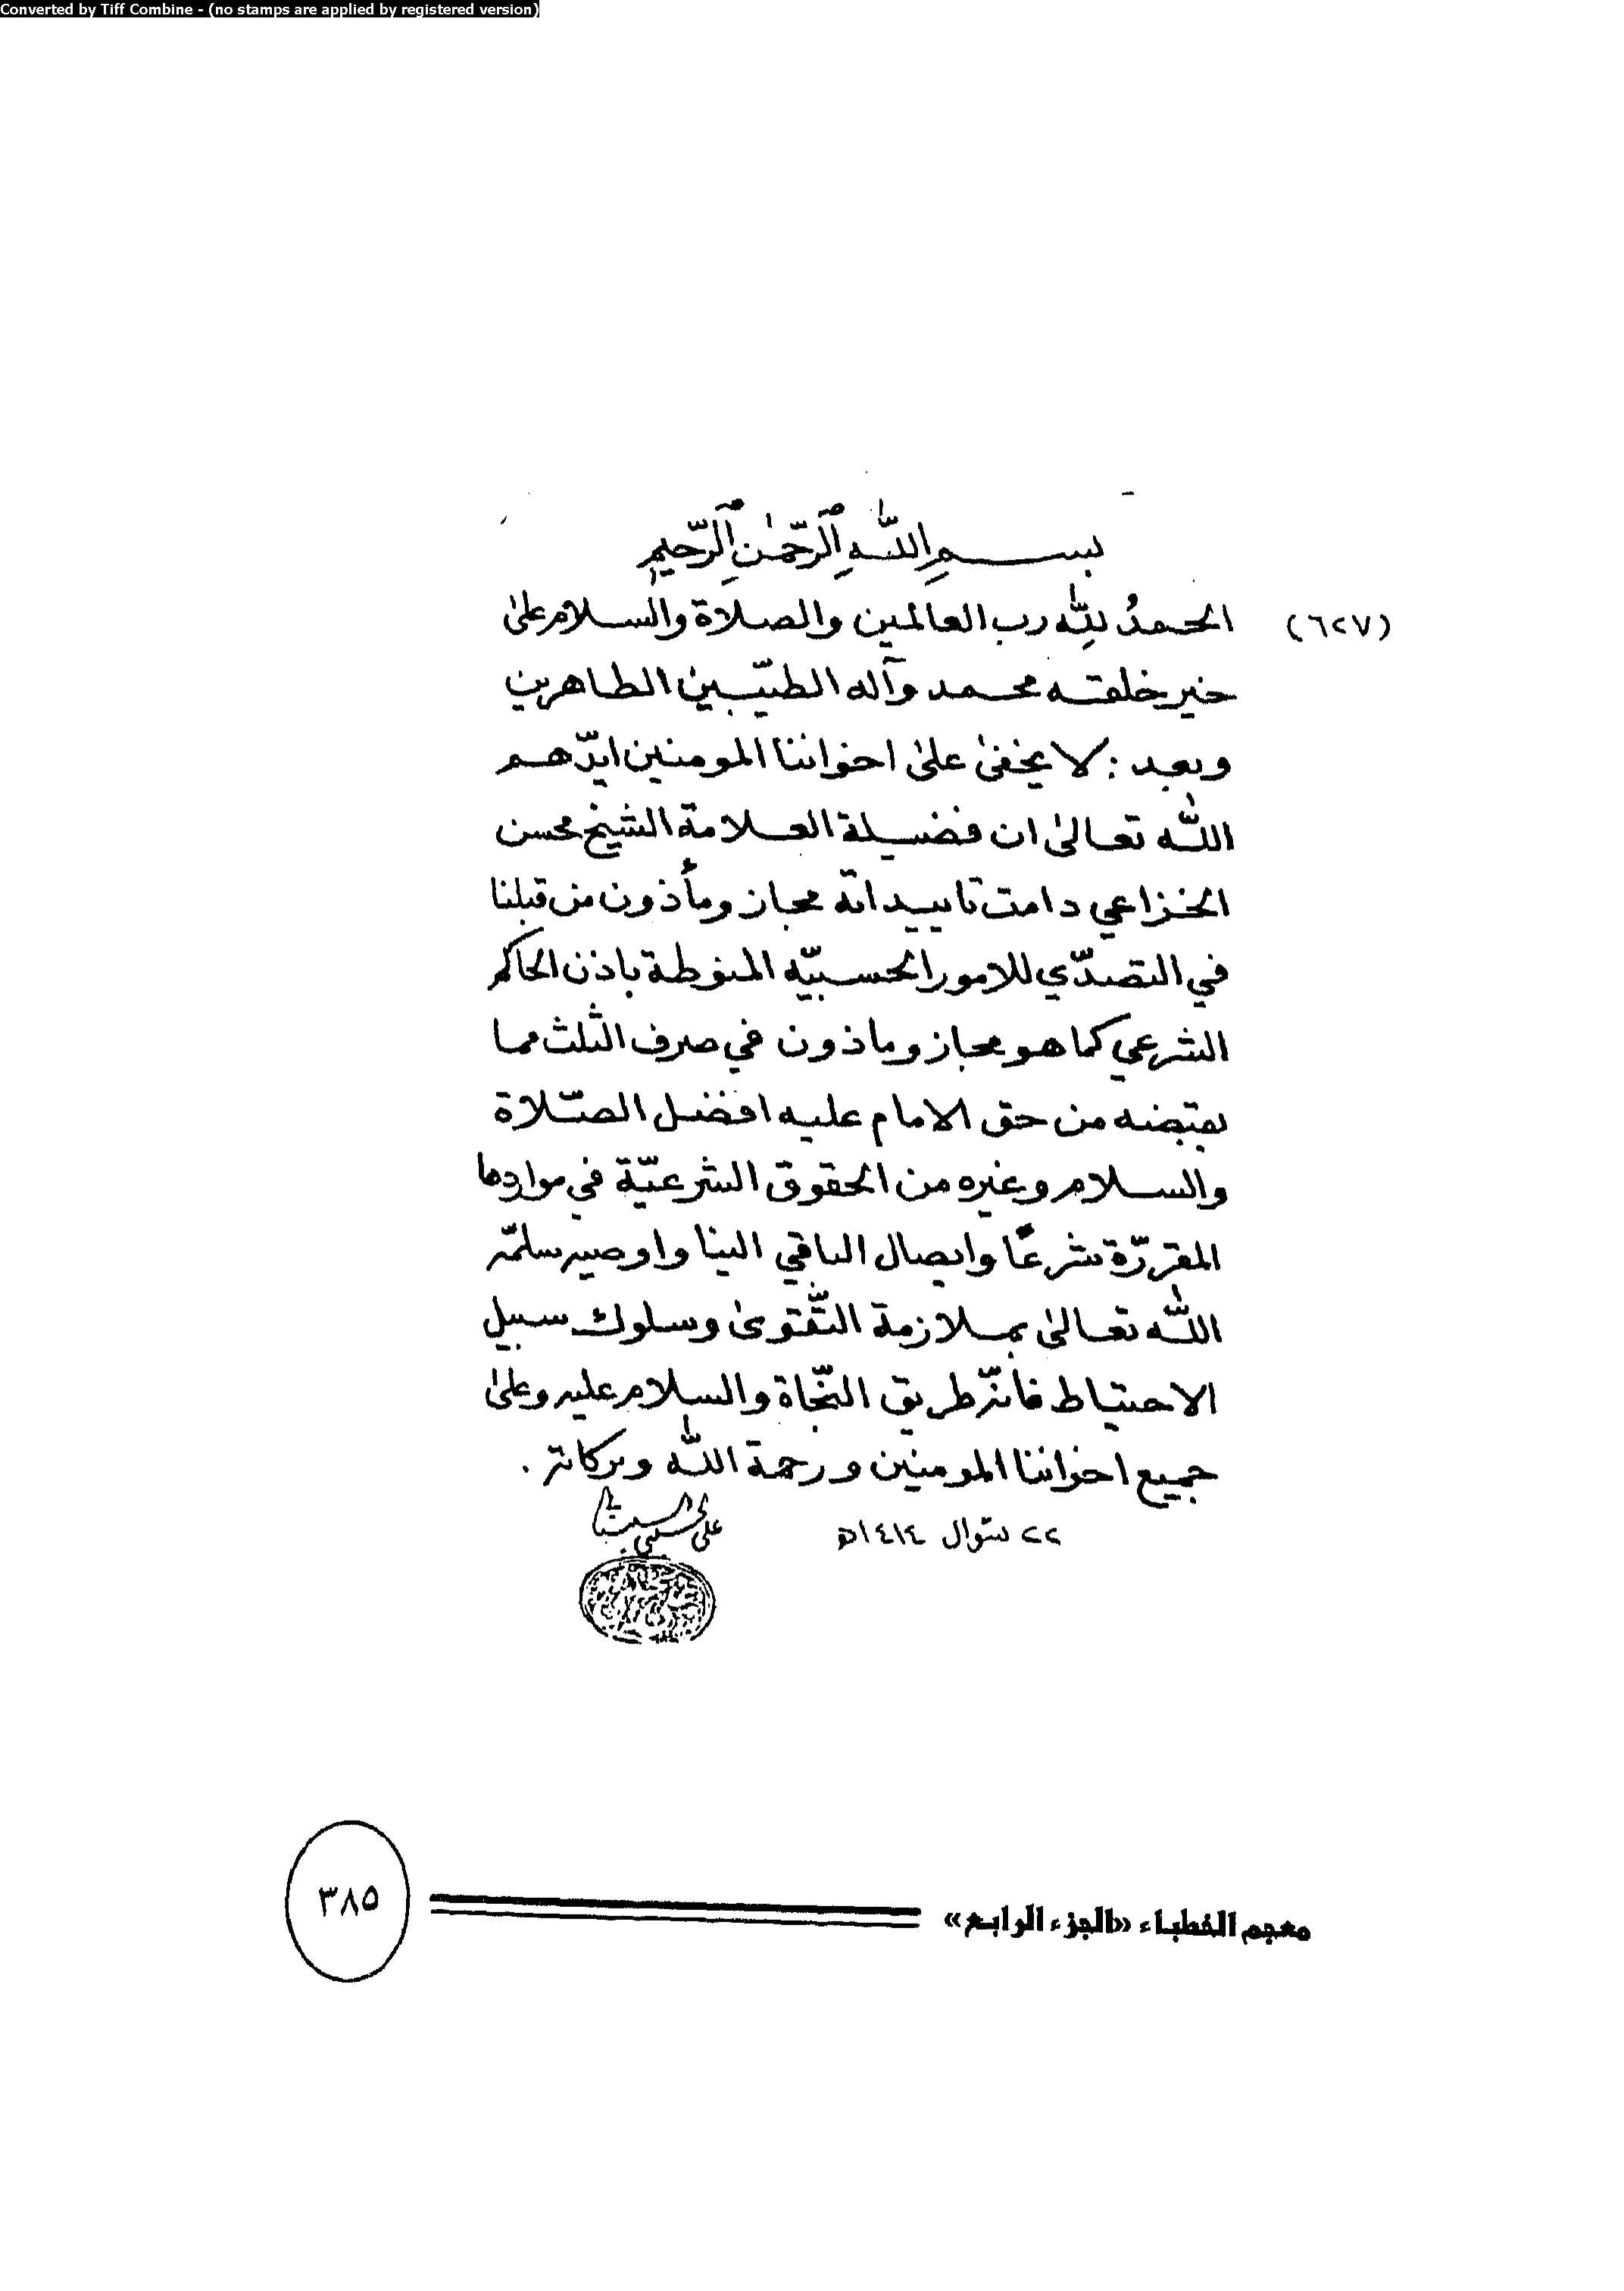 Converted by Tiff Combine - (no stamps are applied by registered version)
بسم الله الرحمن الرحيم
(٦٢٧) الحمدُ للهِ رب العالمين والصلاة والسلام على
خير خلقه محمد وآله الطيّبين الطاهرين
وبعد : لا يخفى على اخواننا المومنين ايّدهم
الله تعالى ان فضيلة العلامة الشيخ محسن
الخزاعي دامت تاييداته مجاز ومأذون من قبلنا
في التصدّي للامور الحسبيّه المنوطة باذن الحاكم
الشرعي كما هو مجاز وماذون في صرف الثلث مما
يقبضه من حق الامام عليه افضل الصّلاة
والسلام وغيره من الحقوق الشرعيّة في مواردها
المقررّة شرعًا وايصال الباقي الينا واوصيه سلمّه
الله تعالى بملازمة التّقوى وسلوك سبيل
الاحتياط فانّه طريق النّجاة والسلام عليه وعلى
جميع اخواننا المومنين ورحمة الله وبركاته .
٢٢ شوّال ١٤١٤ه علي الحسيني السيستاني
معجم الخطباء «الجزء الرابع»
٣٨٥